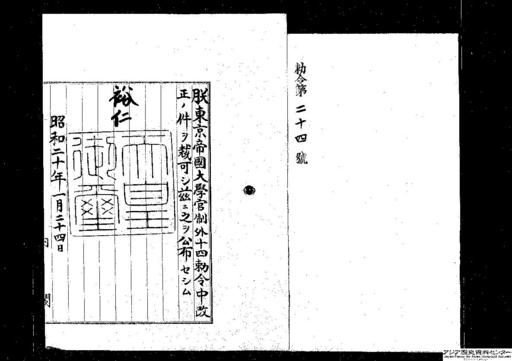 勅令第二十四號
朕東京帝國大學官制外十四勅令中改
正ノ件ヲ裁可シ茲ニ之ヲ公布セシム
裕仁
天皇御璽
昭和二十年一月二十四日
内閣
アジア歴史資料センター